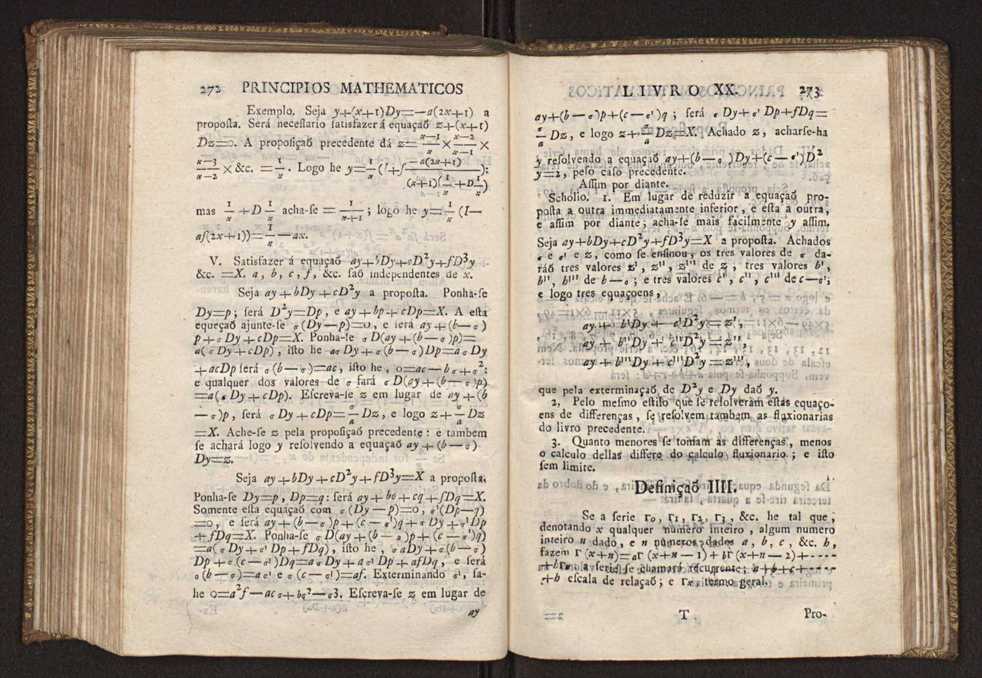 272 PRINCIPIOS MATHEMATICOS
Exemplo. Seja y+(x+1)Dy=—a(2x+1) a
proposta. Será necessario satisfazer á equaçaõ z+(x+1)
Dz=0. A proposiçaõ precedente dá z= x—1/x × x—2/x—1 ×
x—3/x—2 × &c. = 1/x. Logo he y= 1/x (
mas 1/x + D 1/x acha-se = 1/x+1 ; logo he y= 1/x (I—
af(2x+1))= —ax.
V. Satisfazer á equaçaõ ay+bDy+cD²y+fD³y
&c. =X. a, b, c, f, &c. saõ independentes de x.
Seja ay+bDy+cD²y a proposta. Ponha-se
Dy=p; será D²y=Dp, e ay+bp+cDp=X. A esta
equeçaõ ajunte-se e(Dy—p)=0, e será ay+(b—e)
p+eDy+cDp=X. Ponha-se eD(ay+(b—e)p)=
a(eDy+cDp), isto he aeDy+e(b—e)Dp=aeDy
+acDp será e(b—e)=ac, isto he, 0=ac—be+e²;
e qualquer dos valores de e fará eD(ay+(b—e)p)
=a(eDy+cDp). Escreva-se z em lugar de ay+(b
—e)p, será eDy+cDp= e/a Dz, e logo z+ e/a Dz
=X. Ache-se z pela proposiçaõ precedente: e tambem
se achará logo y resolvendo a equaçaõ ay+(b—e)
Dy=z.
Seja ay+bDy+cD²y+fD³y=X a proposta.
Ponha-se Dy=p, Dp=q: será ay+bp+cq+fDq=X.
Somente esta equaçaõ com e(Dy—p)=0, e'(Dp—q)
=0, e será ay+(b—e)p+(c—e')q+eDy+e'Dp
+fDq=X. Ponha-se eD(ay+(b—e)p+(c—e')q)
=a(eDy+e'Dp+fDq), isto he, eaDy+e(b—e)
Dp+e(c—e')Dq=aeDy+ae'Dp+afDq, e será
e(b—e)=ae' e e(c—e')=af. Exterminando e', sa-
he 0=a²f—ace+be²—e3. Escreva-se z em lugar de
ay
LIVRO XX. 273
ay+(b—e)p+(c—e')q; será eDy+e'Dp+fDq=
e/a Dz, e logo z+ e/a Dz=X. Achado z, acharse-ha
y resolvendo a equaçaõ ay+(b—e)Dy+(c—e')D²
y=z, pelo caso precedente.
Assim por diante.
Scholio. 1. Em lugar de reduzir a equaçaõ pro-
posta a outra immediatamente inferior, e esta a outra,
e assim por diante; acha-se mais facilmente y assim.
Seja ay+bDy+cD²y+fD³y=X a proposta. Achados
e e e' e z, como se ensinou, os tres valores de e da-
ráõ tres valores z', z'', z''' de z, tres valores b',
b'', b''' de b—e; e tres valores c', c'', c''' de c—e';
e logo tres equaçoens,
ay+b'Dy+c'D²y=z',
ay+b''Dy+c''D²y=z'',
ay+b'''Dy+c'''D²y=z''',
que pela exterminaçaõ de D²y e Dy daõ y.
2. Pelo mesmo estilo que se resolveram estas equaço-
ens de differenças, se resolvem tambam as fluxionarias
do livro precedente.
3. Quanto menores se tomam as differenças, menos
o calculo dellas differe do calculo fluxionario; e isto
sem limite.
Definiçaõ IIII.
Se a serie r0, r1, r2, r3, &c. he tal que,
denotando x qualquer numero inteiro, algum numero
inteiro n dado, e n numeros dados a, b, c, &c. h,
fazem r(x+n)=ar(x+n—1)+br(x+n—2)+----
+hrx, a serie se chamará recurrente; a+b+c+----
+h escala de relaçaõ; e rx, termo geral.
T Pro-